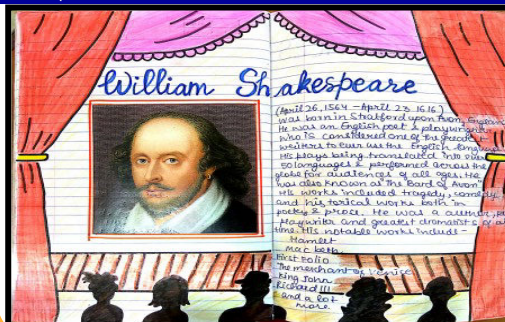 William Shakespeare
(April 26, 1564 - April 23 1616)
was born in Stratford upon Avon, England
He was an English poet & playwright
who is considered one of the greatest
writers to ever use the English language
His plays being translated into over
50 languages & performed across the
globe for audiences of all ages. He
was also known as the Bard of Avon"
His works included tragedy, comedy,
and historical works both in
poetry & prose. He was a author,
playwriter and greatest dramatists of a
time. His notable works include -
Hamlet
Mac beth
First Folio
The merchant of Venice
King John
Richard III
and a lot
more